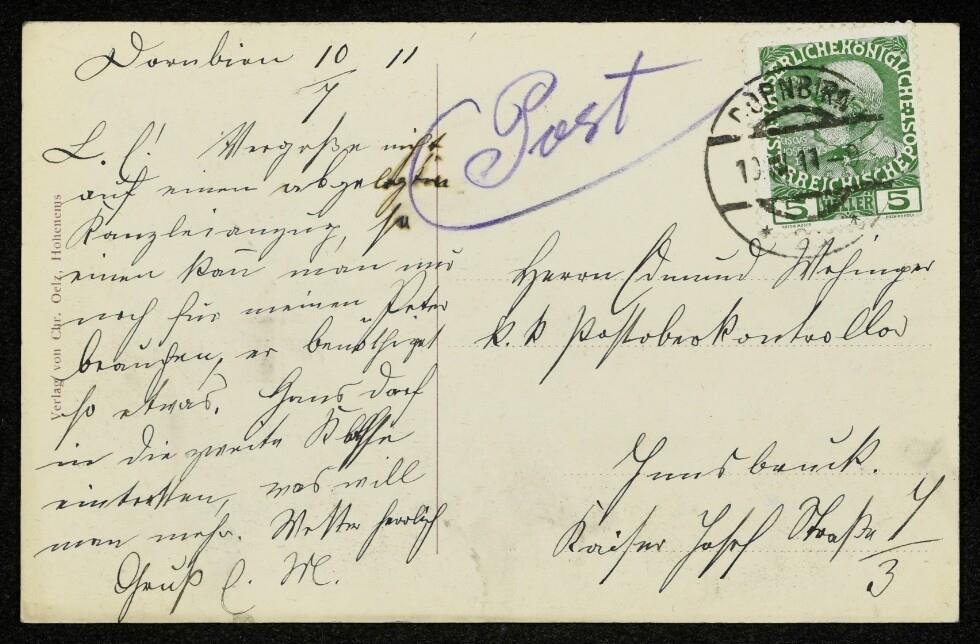 Dornbirn 10/7 11
L. E! Vergeße nicht
auf einen abgelegten
Kanzleianzug, so
einen kann man nur
noch für meinen Peter
brauchen, er benöthiget
so etwas. Hans darf
in die zweite Klasse
eintretten, was will
man mehr. Wetter herrlich
Gruß E. M.
Verlag von Chr. Oelz, Hohenems
Post
KAISERLICHEKÖNIGLICHE
ÖSTERREICHISCHE POST
5 HELLER 5
DORNBIRN
Herrn Edmund Wehinger
k. k Postoberkontrollor
Innsbruck.
Kaiser Josef Straße 7/3